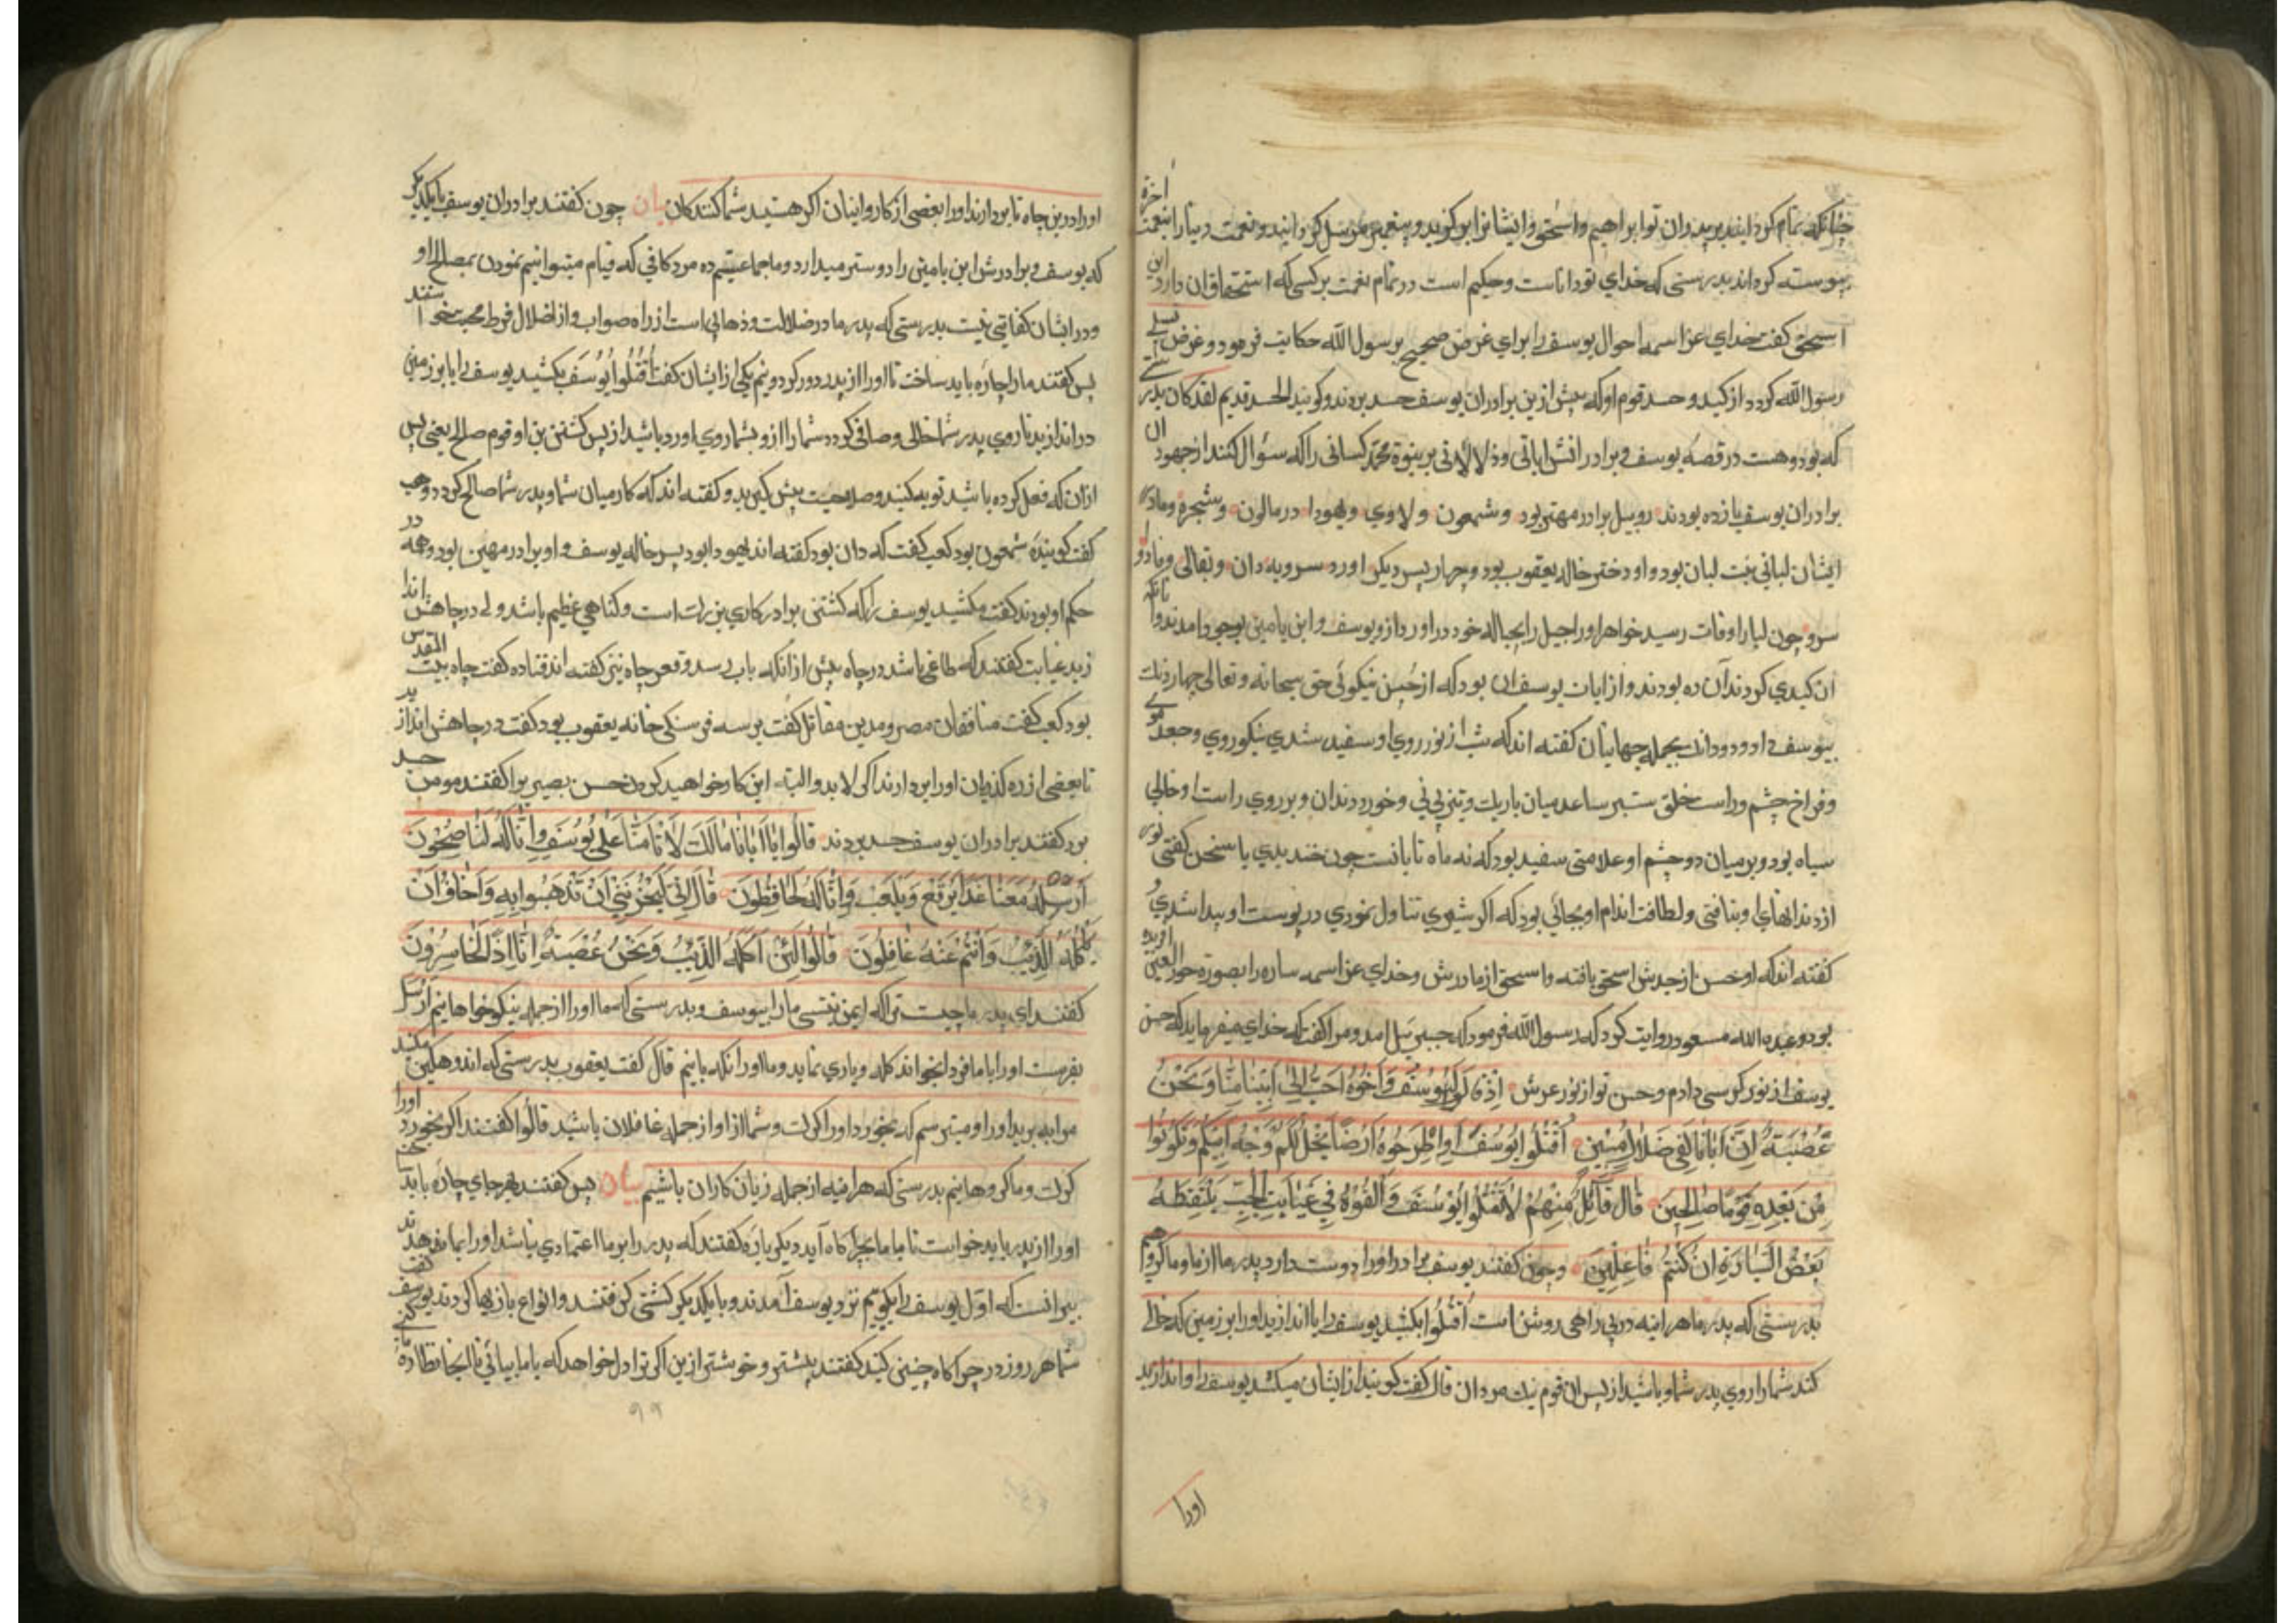 چنانکه تمام کردانید بر پدران تو ابراهیم و اسحق و ایشانرا برکزید و پیغمبر مرسل کردانید و نعمت دنیا را بنعمت اخرة
پیوسته کرداند بدرستی که خدای تو داناست و حکیم است در تمام نعمت بر کسی که استحقاق ان دارد ابن
اسحق کفت خدای عز اسمه احوال یوسف را برای غرض صحیح بر رسول الله حکایت فرمود و غرض تسلی
رسول الله کردد از کید و حسد قوم او که پیش ازین برادران یوسف حسد بردند و کویند الحسد قدیم لقد کان بدرستی
که بود و هست در قصه یوسف و برادرانش ایاتی و دلالاتی بر نبوة محمد کسانی را که سؤال کنند از جهود ان
برادران یوسف یازده بودند روبیل برادر مهتر بود و شمعون و لاوی و یهودا در مالون و شجره و مادر
ایشان لیانی بنت لبان بود و او دختر خاله یعقوب بود و چهار پسر دیکر اورد سروبه دان و نفتالی و جاد و
سر و چون لیا را وفات رسید خواهر او راحیل را بحباله خود در اورد از و یوسف و ابن یامین بوجود امدند و انانکه
ان کیدی کردند آن ده بودند و از ایات یوسف ان بود که از حسن نیکوئی حق سبحانه و تعالی چهار دنك
بیوسف داد و دو دانك بجمله جهانیان کفته اند که شب از نور روی او سفید شدی نیکو روی و جعد موی
و فراخ چشم و راست خلق ستبر ساعد میان باریك و تیز بینی و خورد دندان و بر روی راست او خالی
سیاه بود و بر میان دو چشم او علامتی سفید بود که نه ماه تابانست چون خندیدی یا سخن کفتی نور
از دندانهای او بتافتی و لطافت اندام او بجائی بود که اکر شیوی تناول نمودی در پوست او پیدا شدی و
کفته اند که او حسن از جدش اسحق یافته و اسحق از مادرش و خدای عز اسمه ساره را بصورة حور العین افریده
بود و عبد الله مسعود روایت کرد که رسول الله فرمود که جبرئیل امد و مرا کفت که خدای میفرماید که حسن
یوسف از نور کرسی دادم و حسن تو از نور عرش اِذْ قَالُوا لَیُوسُفُ وَاَخُوهُ اَحَبُّ اِلٰی اَبِینَا مِنَّا وَنَحْنُ
عُصْبَةٌ اِنَّ اَبَانَا لَفِی ضَلَالٍ مُبِینٍ اُقْتُلُوا یُوسُفَ اَوِ اطْرَحُوهُ اَرْضًا یَخْلُ لَکُمْ وَجْهُ اَبِیکُمْ وَتَکُونُوا
مِنْ بَعْدِهِ قَوْمًا صَالِحِینَ قَالَ قَآئِلٌ مِنْهُمْ لَا تَقْتُلُوا یُوسُفَ وَاَلْقُوهُ فِی غَیَابَتِ الْجُبِّ یَلْتَقِطْهُ
بَعْضُ السَّیَّارَةِ اِنْ کُنْتُمْ فَاعِلِینَ و چون کفتند یوسف و برادر او را دوست دارد پدر ما از ما و ما کروهیم
بدرستی که پدر ما هر اینه در بی راهی روشن است اُقْتُلُوا بکشید یوسف را یا اندازید او را بر زمین که خالی
کند شما را روی پدر شما و باشید از پس ان قوم نیك مردان قال کفت کوینده از ایشان مکشید یوسف را و اندازید
اورا
اورا درین چاه تا بردارند او را بعضی از کاروانیان اکر هستید شما کنندکان بیان چون کفتند برادران یوسف با یکدیکر
که یوسف و برادرش ابن یامین را دوستر میدارد و ما جماعتیم ده مرد کافی که قیام میتوانیم نمودن بمصالح او
و در ایشان کفایتی نیست بدرستی که پدر ما در ضلالت و ذهابی است از راه صواب و از اضلال فرط محبت خواستند
پس کفتند ما را چاره باید ساخت تا او را از پدر دور کردونیم یکی از ایشان کفت اُقْتُلُوا یُوسُفَ بکشید یوسف را یا بر زمین
دراندازید تا روی پدر شما خالی و صافی کردد شما را از و بشما روی اورد و باشید از پس کشتن بن او قوم صالح یعنی پس
ازان که فعل کرده باشید توبه کنید و صلاحیت پیش کیرید و کفته اند که کار میان شما و پدر شما صالح کردد وهب
کفت کوینده شمعون بود کعب کفت که دان بود کفته اند یهودا بود پسر خاله یوسف و او برادر مهین بود و همه در
حکم او بودند کفت مکشید یوسف را که کشتن برادر کاری بزرك است و کناهی عظیم باشد ولی در چاهش اندا
زید غیابت کفتند که طاغی باشد در چاه پیش از انکه باب رسد و قعر چاه نیز کفته اند قتاده کفت چاه بیت المقدس
بود کعب کفت میانفقان مصر و مدین مقاتل کفت بر سه فرسنکی خانه یعقوب بود کفت در چاهش اندازید
تا بعضی از ره کذریان او را بردارند اکر لابد و البته این کار خواهید کردن حسن بصیری را کفتند مومن حسد
برد کفتند برادران یوسف حسد بردند قَالُوا یَآ اَبَانَا مَالَكَ لَا تَأمَنَّا عَلٰی یُوسُفَ وَاِنَّا لَهُ لَنَاصِحُونَ
اَرْسِلْهُ مَعَنَا غَدًا یَرْتَعْ وَیَلْعَبْ وَاِنَّا لَهُ لَحَافِظُونَ قَالَ اِنِّی لَیَحْزُنُنِی اَنْ تَذْهَبُوا بِهِ وَاَخَافُ اَنْ
یَأکُلَهُ الذِّئْبُ وَاَنْتُمْ عَنْهُ غَافِلُونَ قَالُوا لَئِنْ اَکَلَهُ الذِّئْبُ وَنَحْنُ عُصْبَةٌ اِنَّا اِذًا لَخَاسِرُونَ
کفتند ای پدر ما چیست ترا که ایمن نیستی ما را بیوسف و بدرستی که ما او را از جمله نیکوخواهانیم اَرْسِل
بفرست او را با ما فردا بخواند کله و بازی نماید و ما او را نکه بانیم قال کفت یعقوب بدرستی که اندوهکین میکند
مرا به برید او را و میترسم که بخورد او را کرك و شما از او از جمله غافلان باشید قَالُوا کفتند اکر بخورد اورا
کرك و ما کروهانیم بدرستی که هراینه از جمله زیان کاران باشیم بیان پس کفتند بهر جای چاره باید
او را از پدر باید خواست تا با ما بچراکاه آید دیکر باره کفتند که پدر را بر ما اعتمادی نباشد او را بما نفرستد
بیر انست که اول یوسف را بکوییم نزد یوسف آمدند و با یکدیکر کشتی کرفتند و انواع بازیها کردند یوسف کفت
شما هر روز در چراکاه چنین کنید کفتند بیشتر و خوشتر ازین اکر ترا دل خواهد که با ما بیائی تا انجا نظاره
۹۹